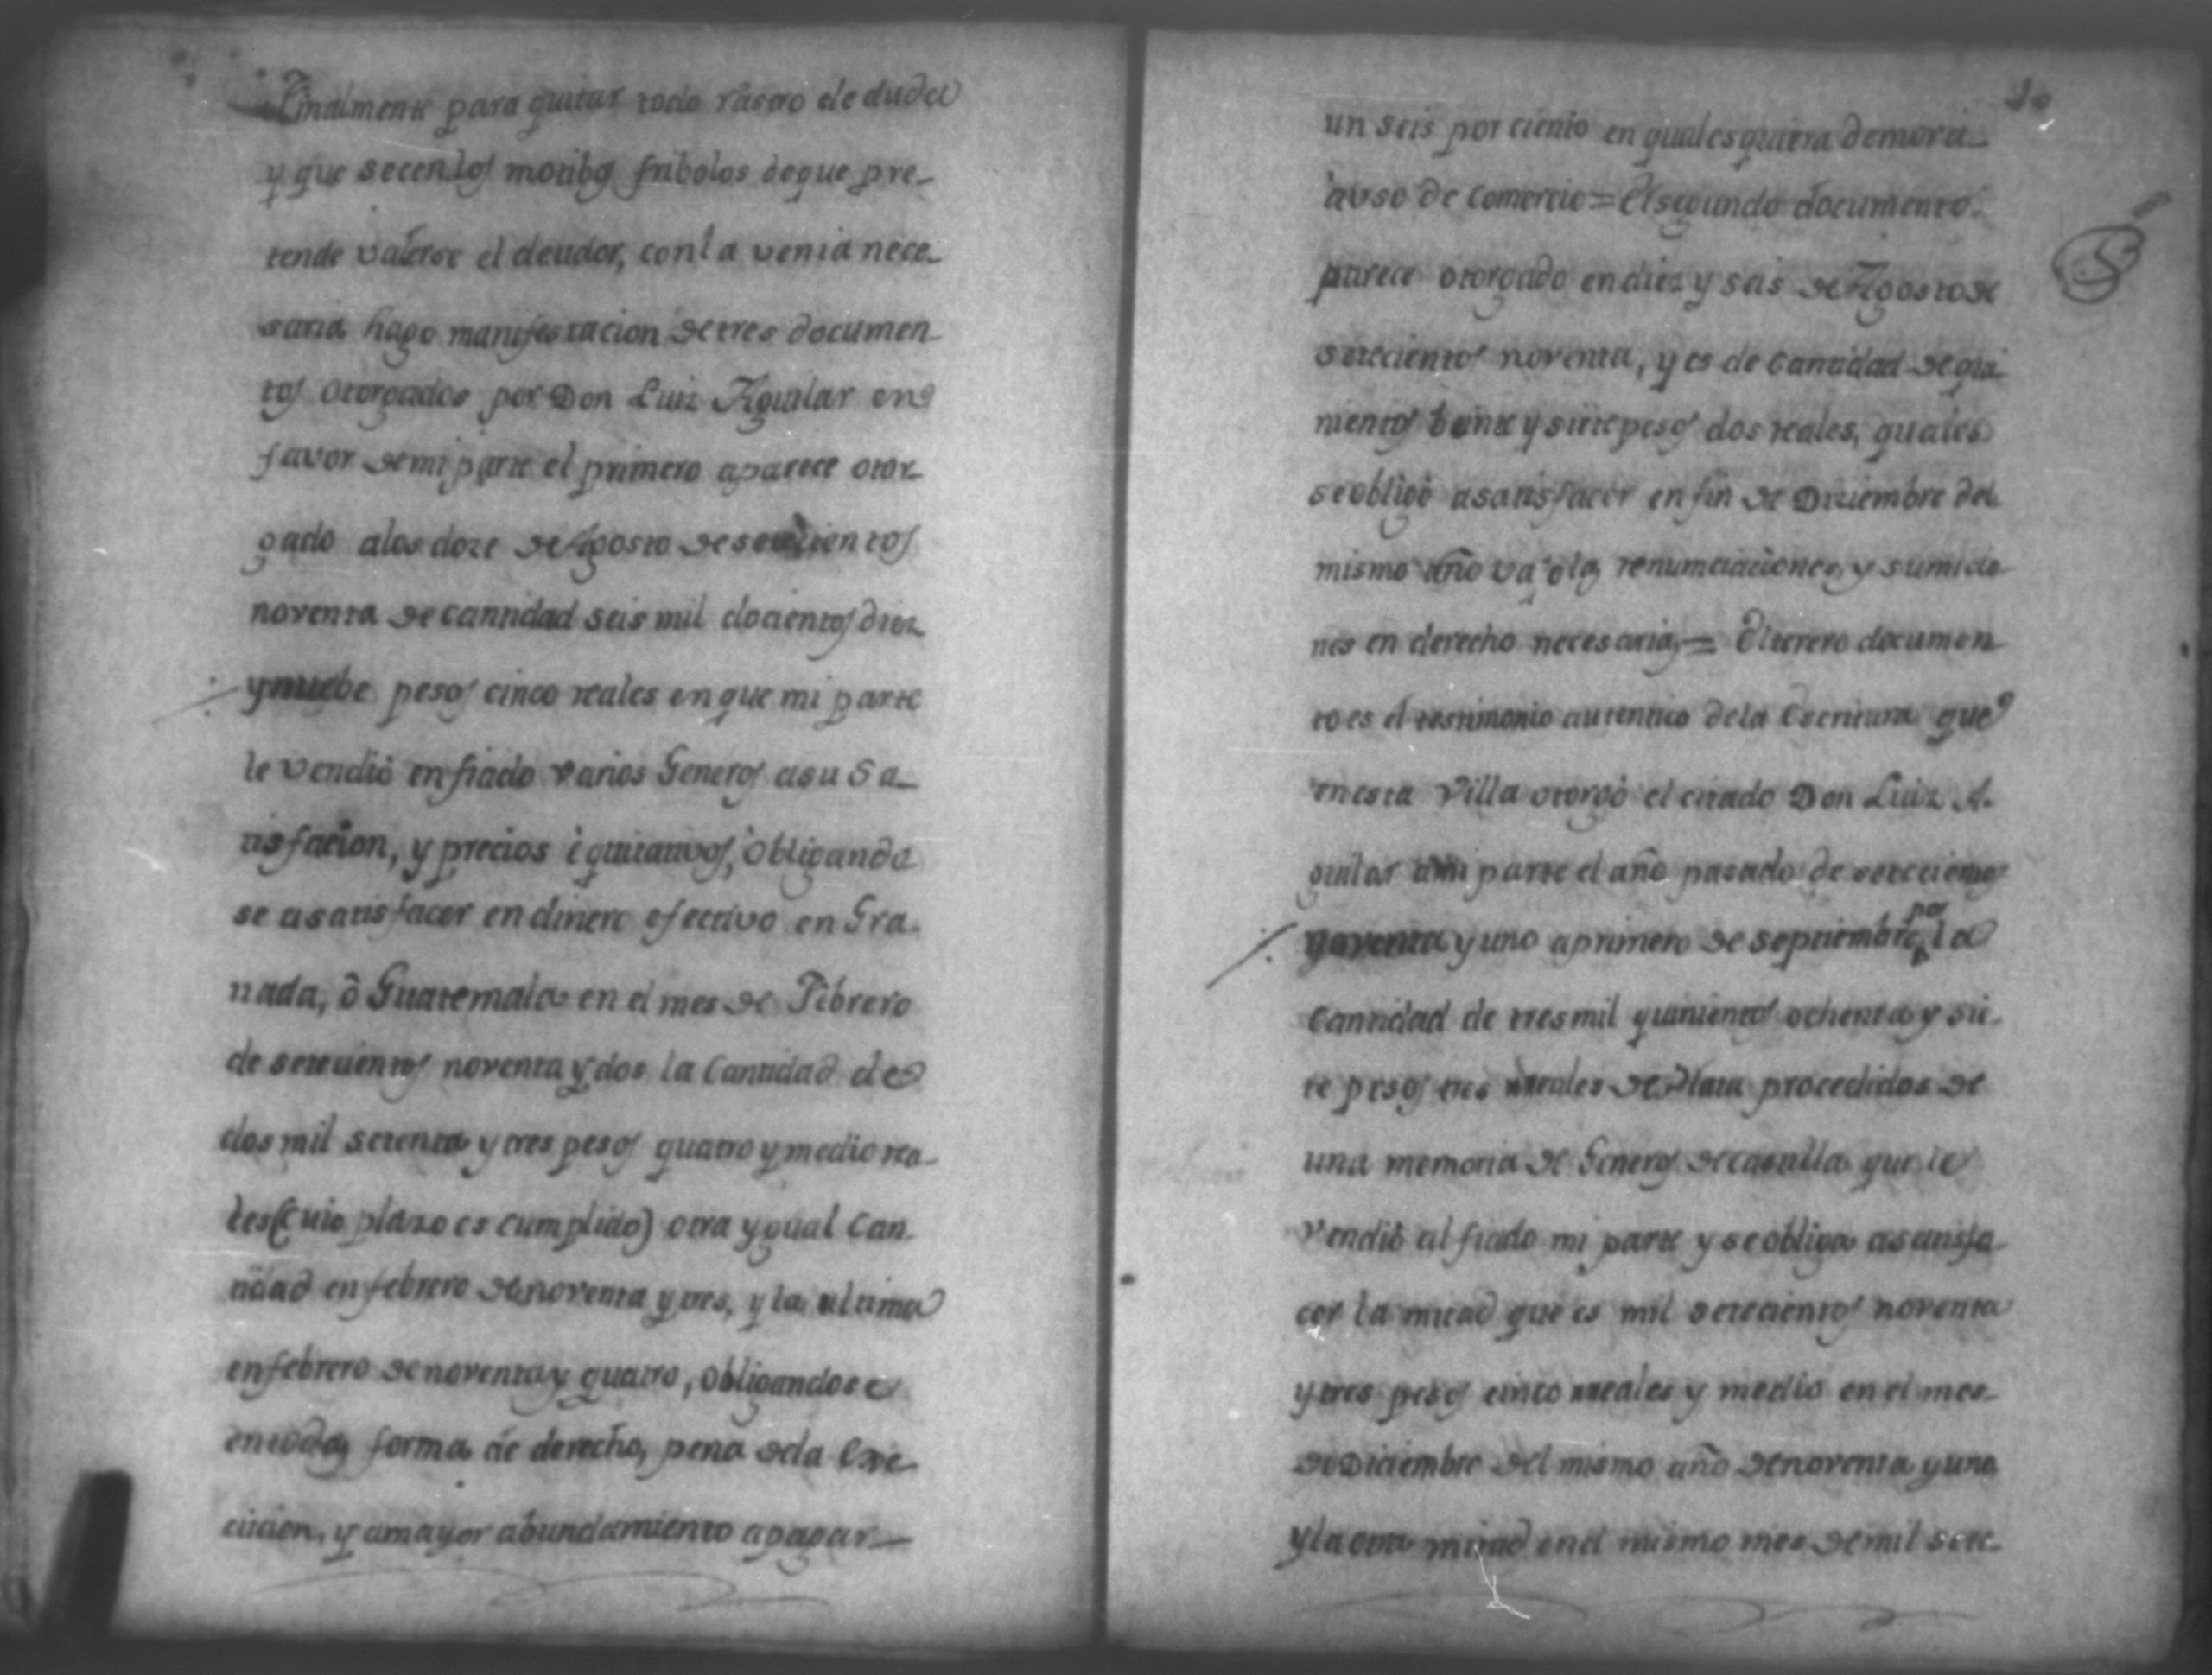 Finalmente para quitar todo rastro de duda
y que secen los motibos fribolos de que pre-
tende valerse el deudor, con la venia nece-
saria hago manifestacion de tres documen-
tos otorgados por Don Luiz Aguilar en
favor de mi parte el primero aparece otor-
gado a los doze de Agosto de setecientos
noventa de cantidad seis mil docientos diez
y nuebe pesos cinco reales en que mi parte
le vendiò en fiado varios Generos a su Sa-
tisfacion, y precios èquitativos, obligando
se a satisfacer en dinero efectivo en Gra-
nada, ò Guatemala en el mes de Febrero
de setecientos noventa y dos la Cantidad de
dos mil setenta y tres pesos quatro y medio rea-
les (cuio plazo es cumplido) otra ygual Can-
tidad en febrero de noventa y tres, y la ultima
en febrero de noventa y quatro, obligandose
en toda forma de derecho, pena de la Exe-
cucion, y a mayor abundamiento a pagar
10
un seis por ciento en qualesquiera demora
a uso de Comercio = El segundo documento
parece otorgado en diez y seis de Agosto de
setecientos noventa, y es de Cantidad de qui-
nientos beinte y siete pesos dos reales, quales
se obligò a satisfacer en fin de Diziembre del
mismo año vajo las renunciaciones, y sumicio-
nes en derecho necesarias = El tercero documen-
to es el testimonio autentico de la Escritura que
en esta Villa otorgò el citado Don Luiz A-
guilar a mi parte el año pasado de setecientos
noventa y uno a primero de septiembre, por la
Cantidad de tres mil quinientos ochenta y sie-
te pesos tres reales de Plata procedidos de
una memoria de Generos de castilla que le
Vendiò al fiado mi parte y se obliga a satisfa-
cer la mitad que es mil setecientos noventa
y tres pesos cinco reales y medio en el mes
de Diciembre del mismo año de noventa y uno
y la otra mitad en el mismo mes de mil sete-